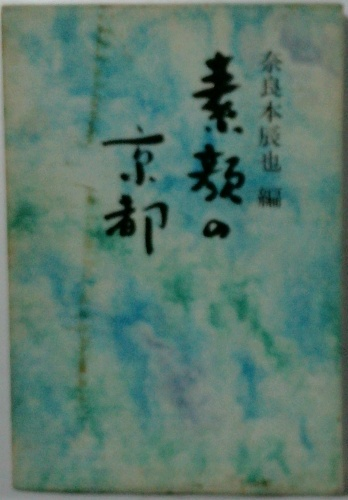 奈良本辰也 編
素顔の
京都